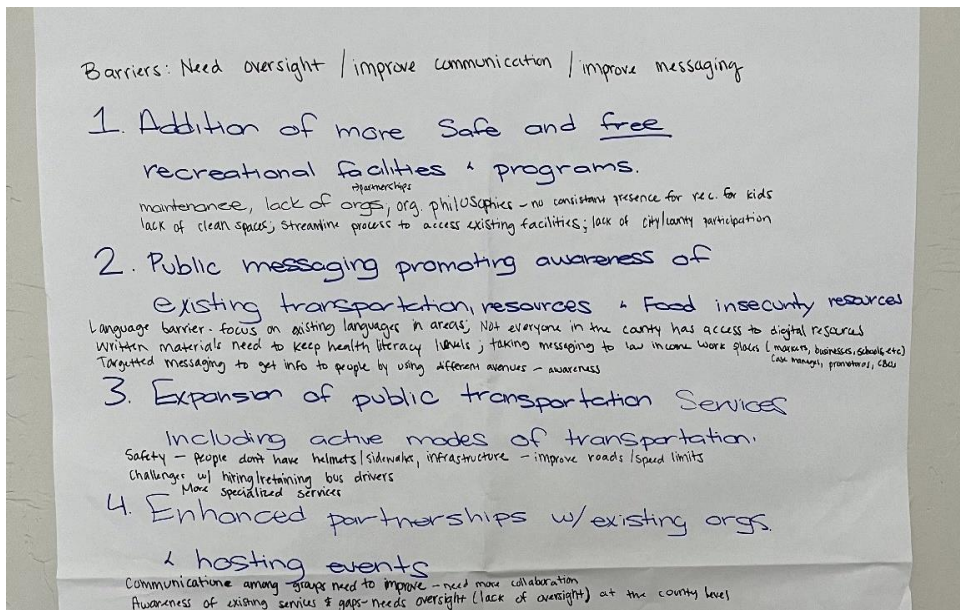 Barriers: Need oversight / improve communication / improve messaging
1. Addition of more Safe and free
recreational facilities & programs.
→partnerships
maintenance, lack of orgs, org. philosophies - no consistent presence for rec. for kids
lack of clean spaces; Streamline process to access existing facilities; lack of city/county participation
2. Public messaging promoting awareness of
existing transportation, resources & Food insecurity resources
Language barrier - focus on existing languages in areas; Not everyone in the county has access to digital resources
Written materials need to keep health literacy levels; taking messaging to low income work places (markets, businesses, schools, etc)
Case managers, promotoras, CBOs
Targetted messaging to get info to people by using different avenues - awareness
3. Expansion of public transportation Services
Including active modes of transportation.
Safety - people don't have helmets/sidewalks, infrastructure - improve roads/speed limits
Challenges w/ hiring/retaining bus drivers
More specialized services
4. Enhanced partnerships w/existing orgs.
& hosting events
Communication among groups need to improve - need more collaboration
Awareness of existing services & gaps - needs oversight (lack of oversight) at the county level